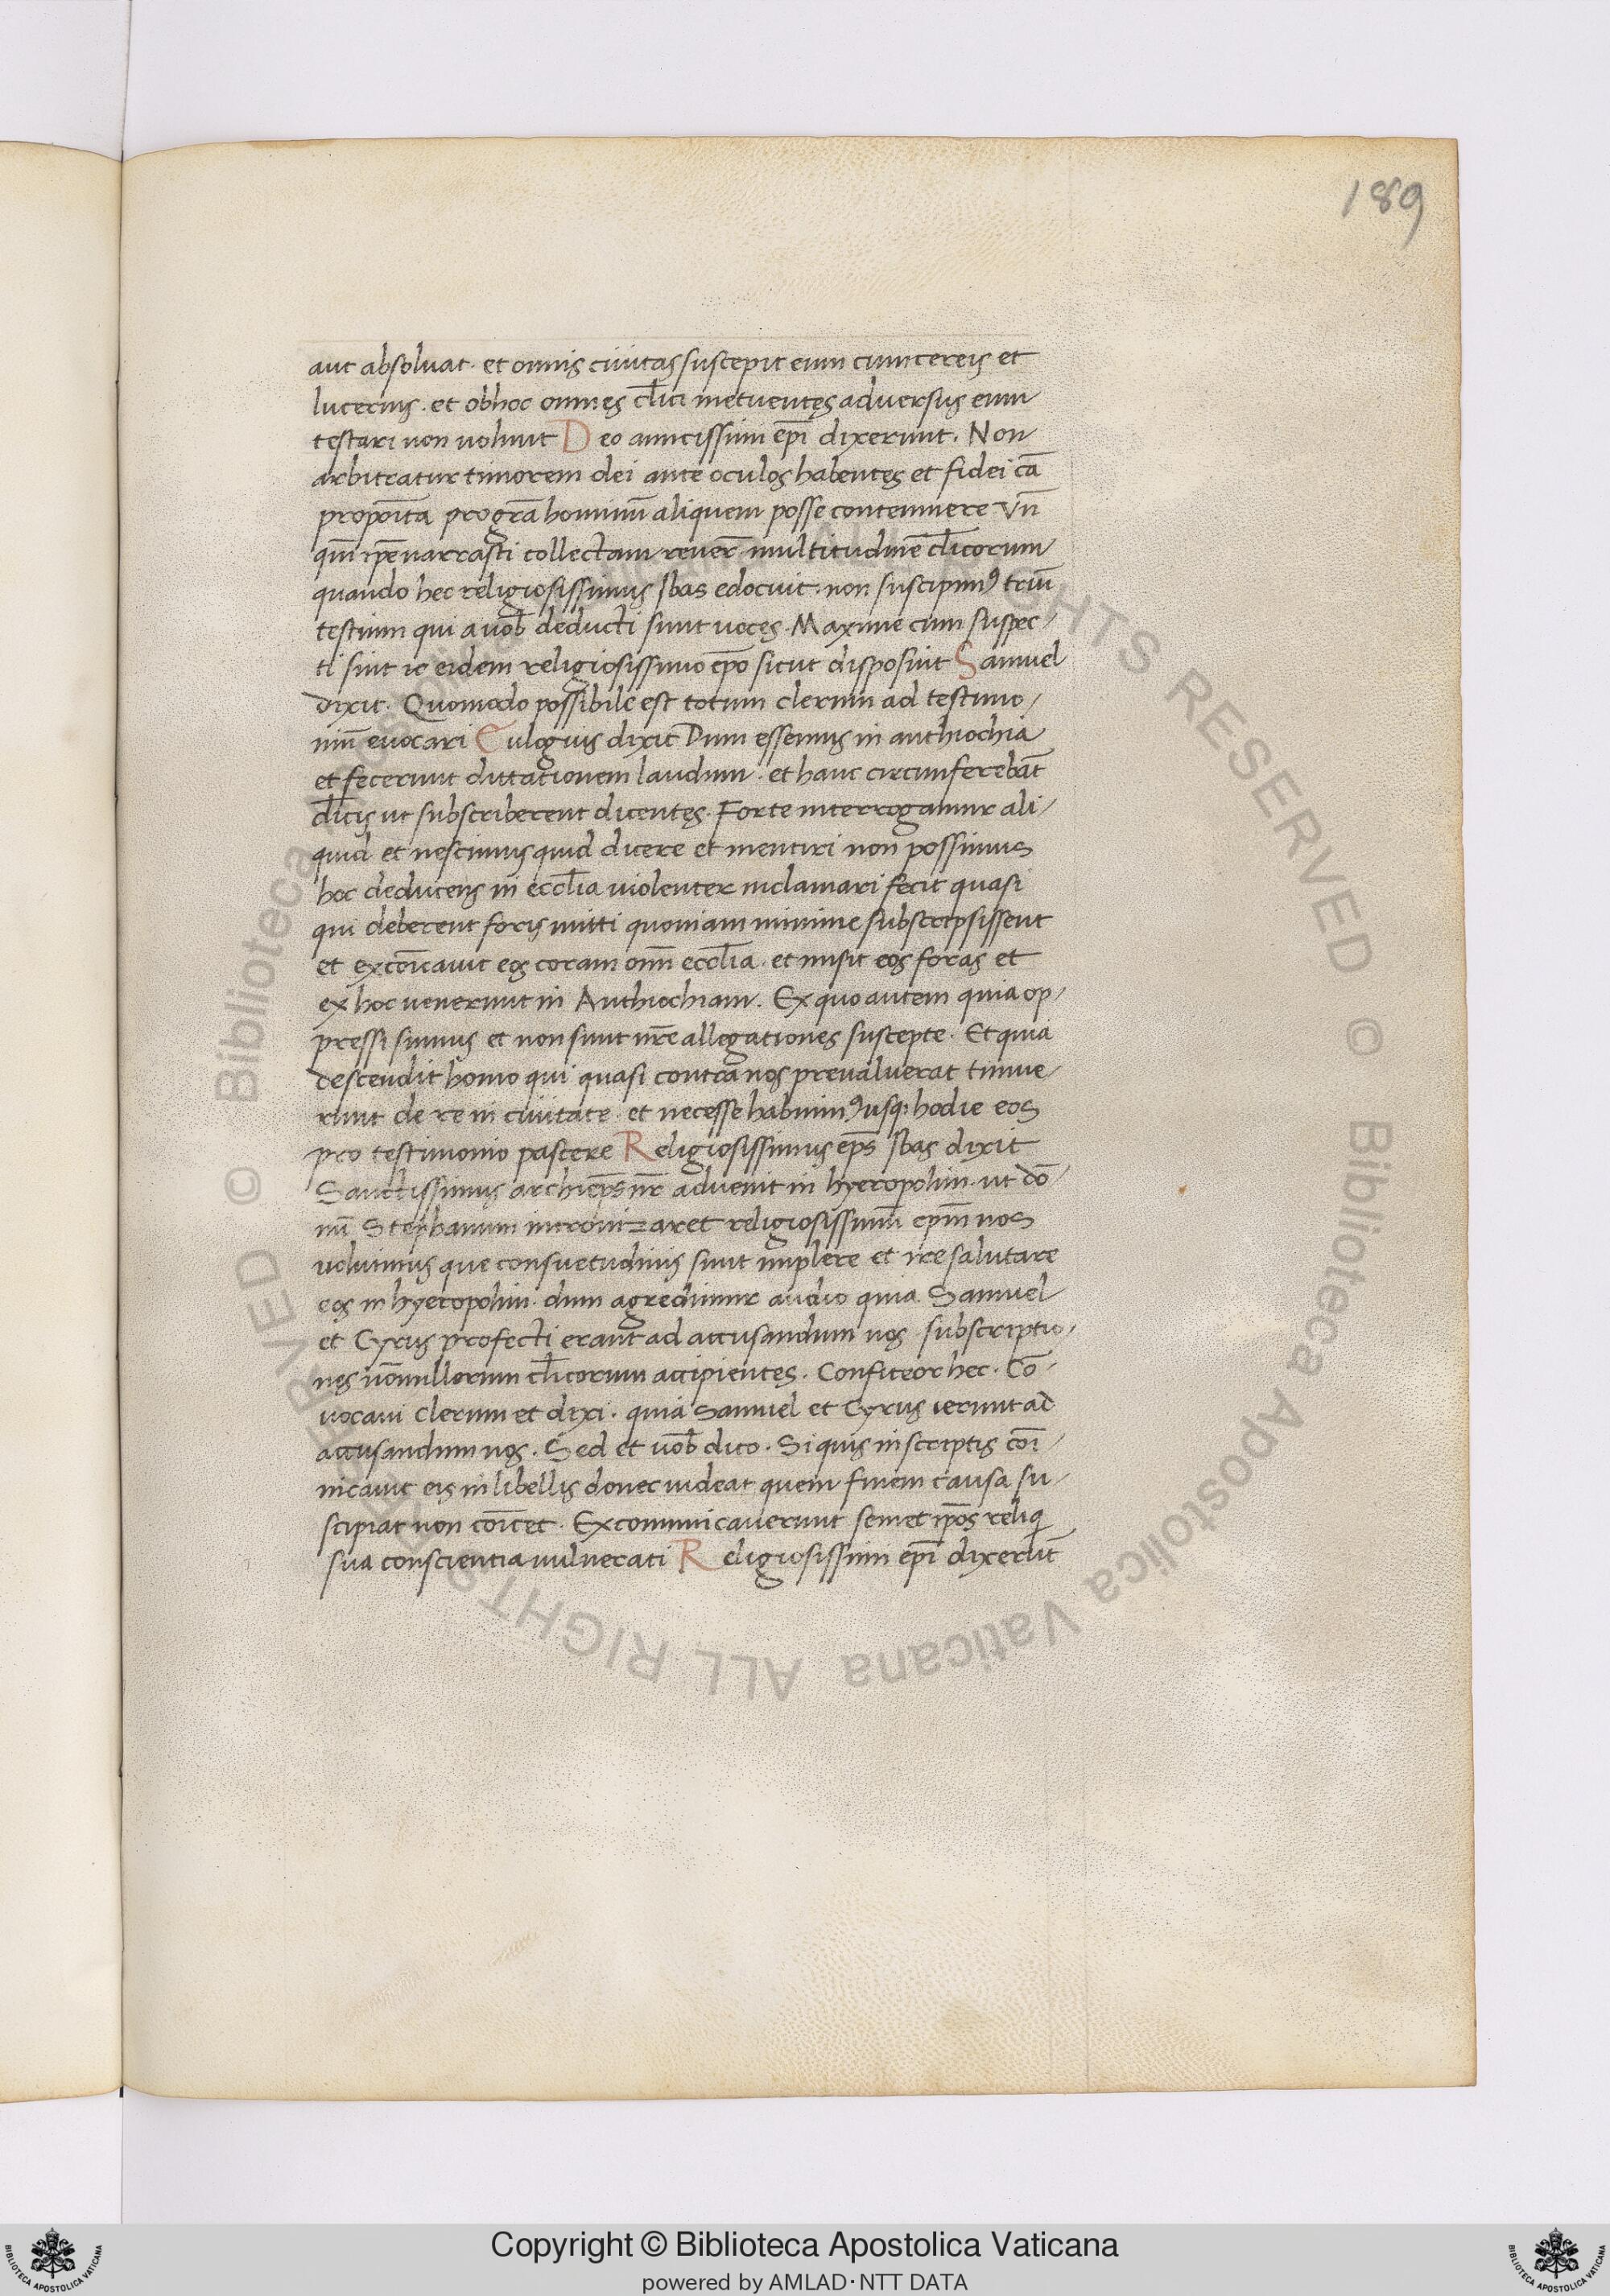 189
aut absoluat. et omnis ciuitas suscepit eum cum cereis et
lucernis. et ob hoc omnes cl̅ici metuentes adversus eum
testari non uolunt Deo amicissimi ep̅i dixerunt. Non
arbitratur timorem dei ante oculos habentes et fidei ca̅
propo̅ita pro gr̅a hominu̅ aliquem posse contemnere Vn̅
qm̅ ip̅e narrasti collectam reuer̅ multitudine̅ cl̅icorum
quando hec religiosissimus Ibas edocuit. non suscipimꝰ triu̅
testium qui a uob̅ deducti sunt uoces. Maxime cum suspec/
ti sint ic eidem religiosissimo ep̅o sicut disposuit Samuel
dixit. Quomodo possibile est totum clerum ad testimo/
niu̅ euocari Eulogius dixit Dum essemus in anthiochia
et fecerunt dictationem laudum. et hanc circumfereba̅t
cl̅icis ut subscriberent dicentes. Forte interrogamur ali/
quid et nescimus quid dicere et mentiri non possimus
hoc deducens in eccl̅ia uiolenter inclamari fecit quasi
qui deberent foris mitti quoniam minime subscripsissent
et exco̅icauit eos coram omn̅ eccl̅ia. et misit eos foras et
ex hoc uenerunt in Anthiochiam. Ex quo autem quia op/
pressi sumus et non sunt nr̅e allegationes suscepte. Et quia
descendit homo qui quasi contra nos preualuerat timue/
runt de re in ciuitate. et necesse habuimꝰ usq; hodie eos
pro testimonio pascere Religiosissimus ep̅s Ibas dixit
Sanctissimus archiep̅s nr̅ advenit in hyeropolim. ut do̅/
nu̅ Stephanum intronizaret religiosissimu̅ ep̅m nos
uoluimus que consuetudinis sunt implere et ire salutare
eos in hyeropolim. dum agredimur audio quia Samuel
et Cyrus profecti erant ad accusandum nos. subscriptio/
nes no̅nullorum cl̅icorum accipientes. Confiteor hec. Co̅/
uocaui clerum et dixi. quia Samuel et Cyrus ierunt ad
accusandum nos. Sed et uob̅ dico. Si quis in scriptis co̅i/
nicauit eis in libellis donec uideat quem finem causa su/
scipiat non co̅icet. Excommunicauerunt semet ip̅os reliqi
sua conscientia uulnerati Religiosissimi ep̅i dixeru̅t
Copyright © Biblioteca Apostolica Vaticana
powered by AMLAD·NTT DATA
© Biblioteca Apostolica Vaticana ALL RIGHTS RESERVED © Biblioteca Apostolica Vaticana ALL RIGHTS RESERVED
BIBLIOTECA APOSTOLICA VATICANA
BIBLIOTECA APOSTOLICA VATICANA